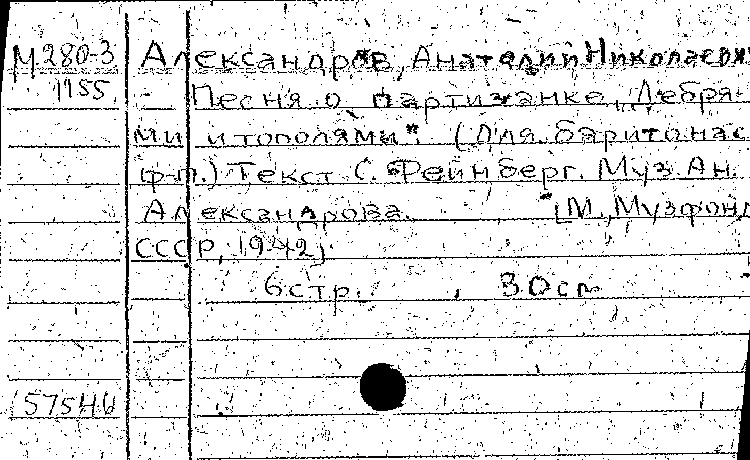 М280-3 Александров, Анаталий Николаевич
1955 - Песня о партизанке, „Дебря-
ми и тополями". (Для баритона с
ф-п.) Текст С. Фейнберг. Муз Ан.
Александрова. [М., Музфонд
СССР, 1942]
6 стр. 30см